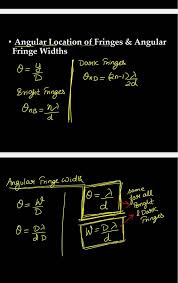 • Angular Location of Fringes & Angular
Fringe Widths
θ = y/D
Bright Fringes
θnB = nλ/d
Dark Fringes
θnD = (2n-1)λ/2d
Angular Fringe Width
θ = W/D
θ = Dλ/dD
θ = λ/d
W = Dλ/d
same
for all
Bright
& Dark
Fringes